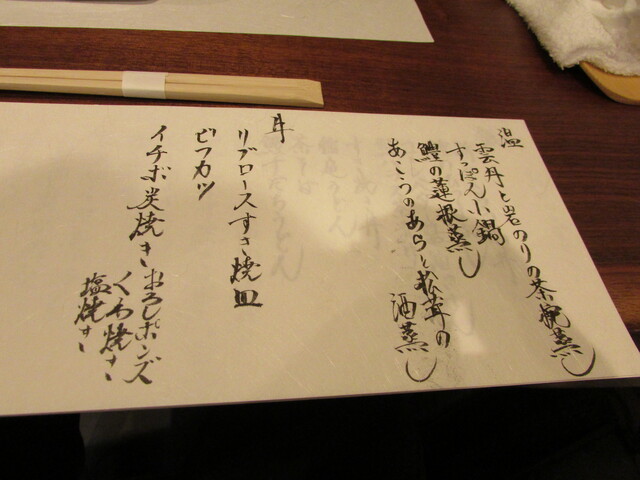 温
雲丹と岩のりの茶碗蒸し
すっぽん小鍋
の蓮根蒸し
あこうのあらと松茸の
酒蒸し
牛
リブロースすき焼皿
ビフカツ
イチボ炭焼き
おろしポンズ
くわ焼き
塩焼き